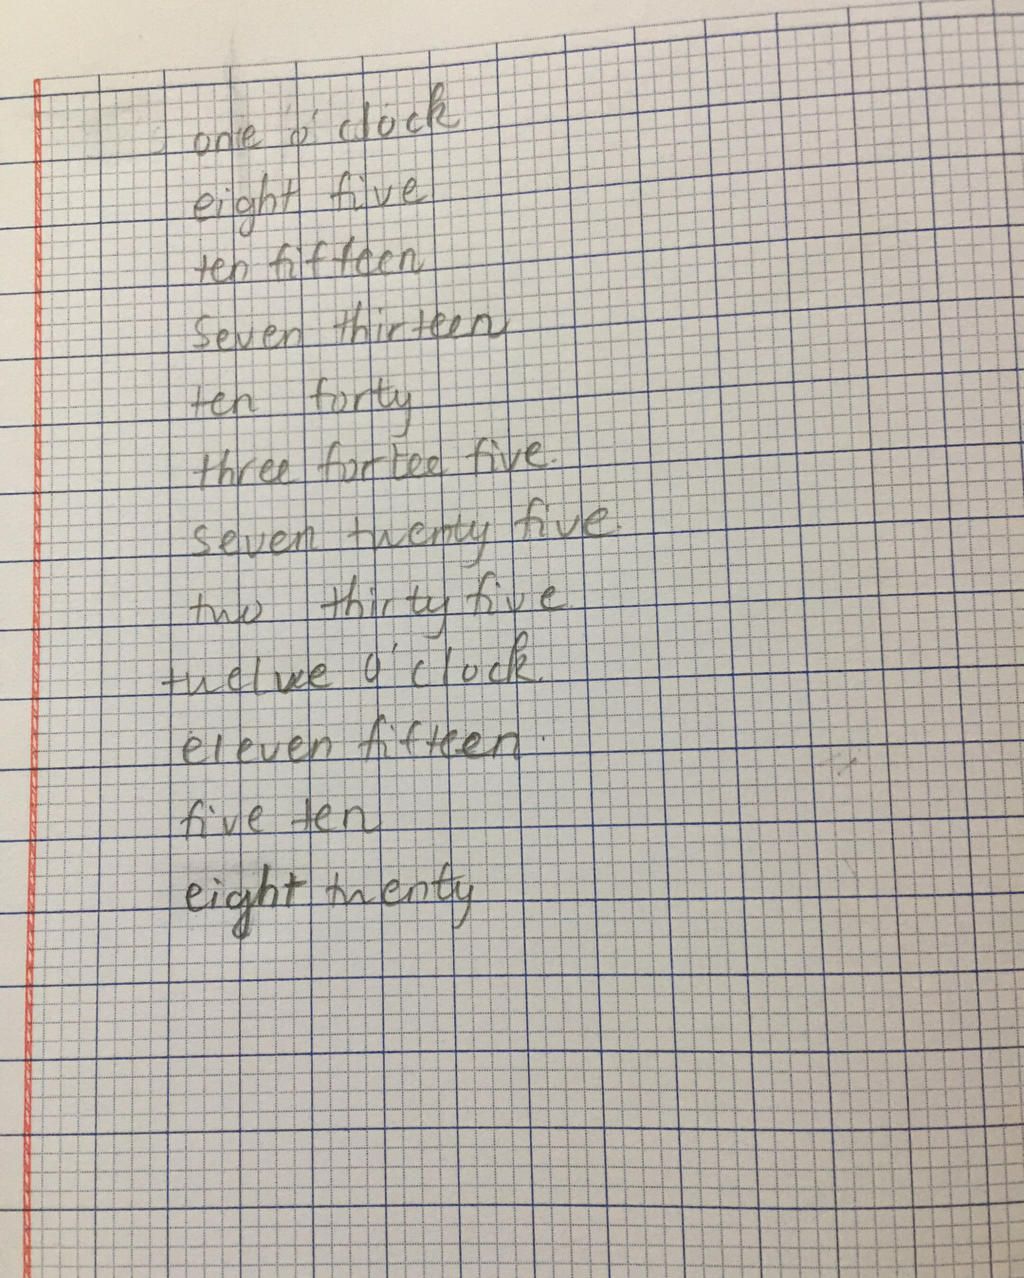 one o'clock
eight five
ten fifteen
seven thirteen
ten forty
three fortee five.
seven twenty five.
two thirty five
twelve o'clock.
eleven fifteen.
five ten
eight twenty